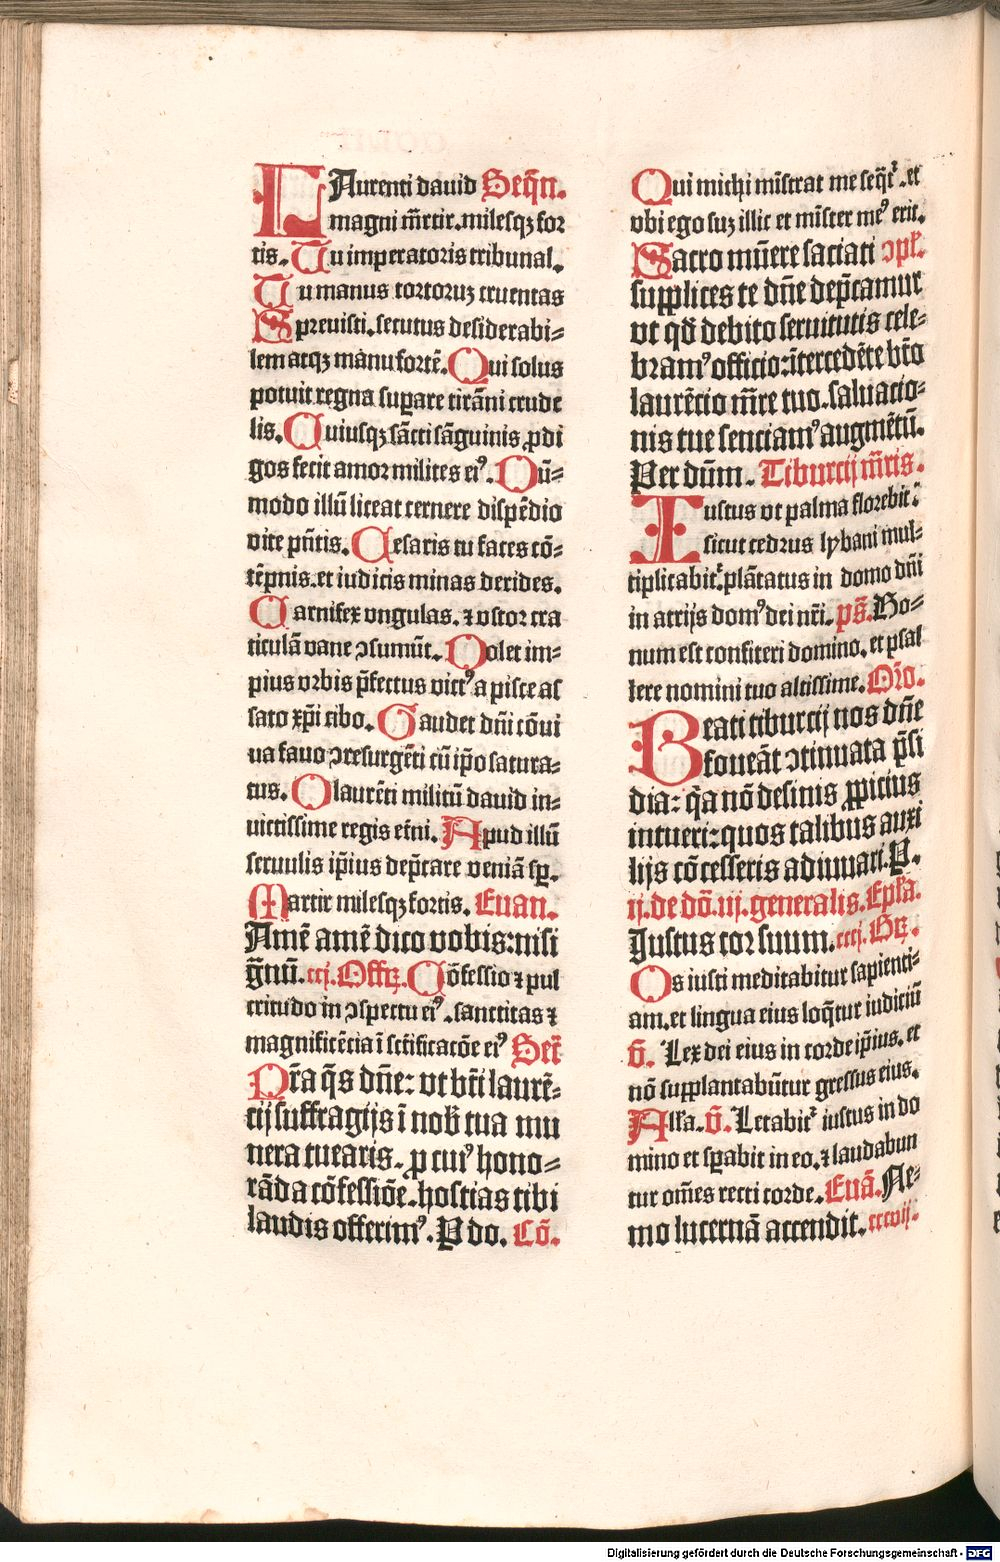 LAurenti dauid Seqn̄.
magni m̄rtir.milesqꝫ for
tis. Tu imperatoris tribunal.
Tu manus tortoruꝫ cruentas
Spreuisti.secutus desiderabi⸗
lem atqꝫ manu fortē. Qui solus
potuit regna suꝑare tirāni crude
lis. Cuiusqꝫ sācti sāguinis ꝓdi
gos fecit amor milites eiꝰ. Qū⸗
modo illū liceat cernere dispēdio
vite pn̄tis. Cesaris tu fasces cō⸗
tēpnis.et iudicis minas derides.
Carnifex vngulas.⁊ vstor cra
ticulā vane ↄsumūt. Dolet im⸗
pius vrbis p̄fectus victꝰ a pisce as
sato xp̄i cibo. Gaudet dn̄i cōui
ua fauo ↄresurgēti cū ip̄o satura⸗
tus. O laurēti militū dauid in⸗
uictissime regis et̄ni. Apud illū
seruulis ip̄ius dep̄care veniā sꝑ.
Martir milesqꝫ fortis. Euan.
Amē amē dico vobis:nisi
ḡnū.ccj.Offꝝ. Cōfessio ⁊ pul
critudo in ↄspectu eiꝰ.sanctitas ⁊
magnificēcia ī sct̄ificatōe eiꝰ Secr̄
Nr̄a q̄s dn̄e: vt bt̄i laurē⸗
cij suffragijs ī nob̄ tua mu
nera tuearis. ꝓ cuiꝰ hono⸗
rāda cōfessiōe.hostias tibi
laudis offerimꝰ. P do. Cō.
Qui michi mīstrat me seq̄tᷣ.et
vbi ego suꝫ illic et mīster meꝰ erit.
Sacro mūere saciati ↄpl̄.
supplices te dn̄e dep̄camur
vt qd̄ debito seruitutis cele⸗
bramꝰ officio:ītercedēte bt̄o
laurēcio m̄re tuo.saluacio⸗
nis tue senciamꝰ augmētū.
Per dūm. Tiburcij m̄ris.
Iustus vt palma florebit:
sicut cedrus lybani mul⸗
tiplicabitᷣ.plātatus in domo dn̄i
in atrijs domꝰ dei nr̄i. ps̄.Bo⸗
num est confiteri domino.et psal
lere nomini tuo altissime.Or̄o.
Beati tiburcij nos dn̄e
foueāt ↄtinuata p̄si
dia: q̄a nō desinis ꝓpicius
intueri:quos talibus auxi
lijs cōcesseris adiuuari.P.
ij.de dō.iij.generalis.Epl̄a.
Justus cor suum.cccj.Gꝝ.
Os iusti meditabitur sapienti⸗
am.et lingua eius loq̄tur iudiciū
v̄. Lex dei eius in corde ip̄ius.et
nō supplantabūtur gressus eius.
All̄a. v̄. Letabitᷣ iustus in do
mino et sꝑabit in eo.⁊ laudabun
tur om̄es recti corde. Euā. Ne⸗
mo lucernā accendit.cccvij.
Digitalisierung gefördert durch die Deutsche Forschungsgemeinschaft - DFG